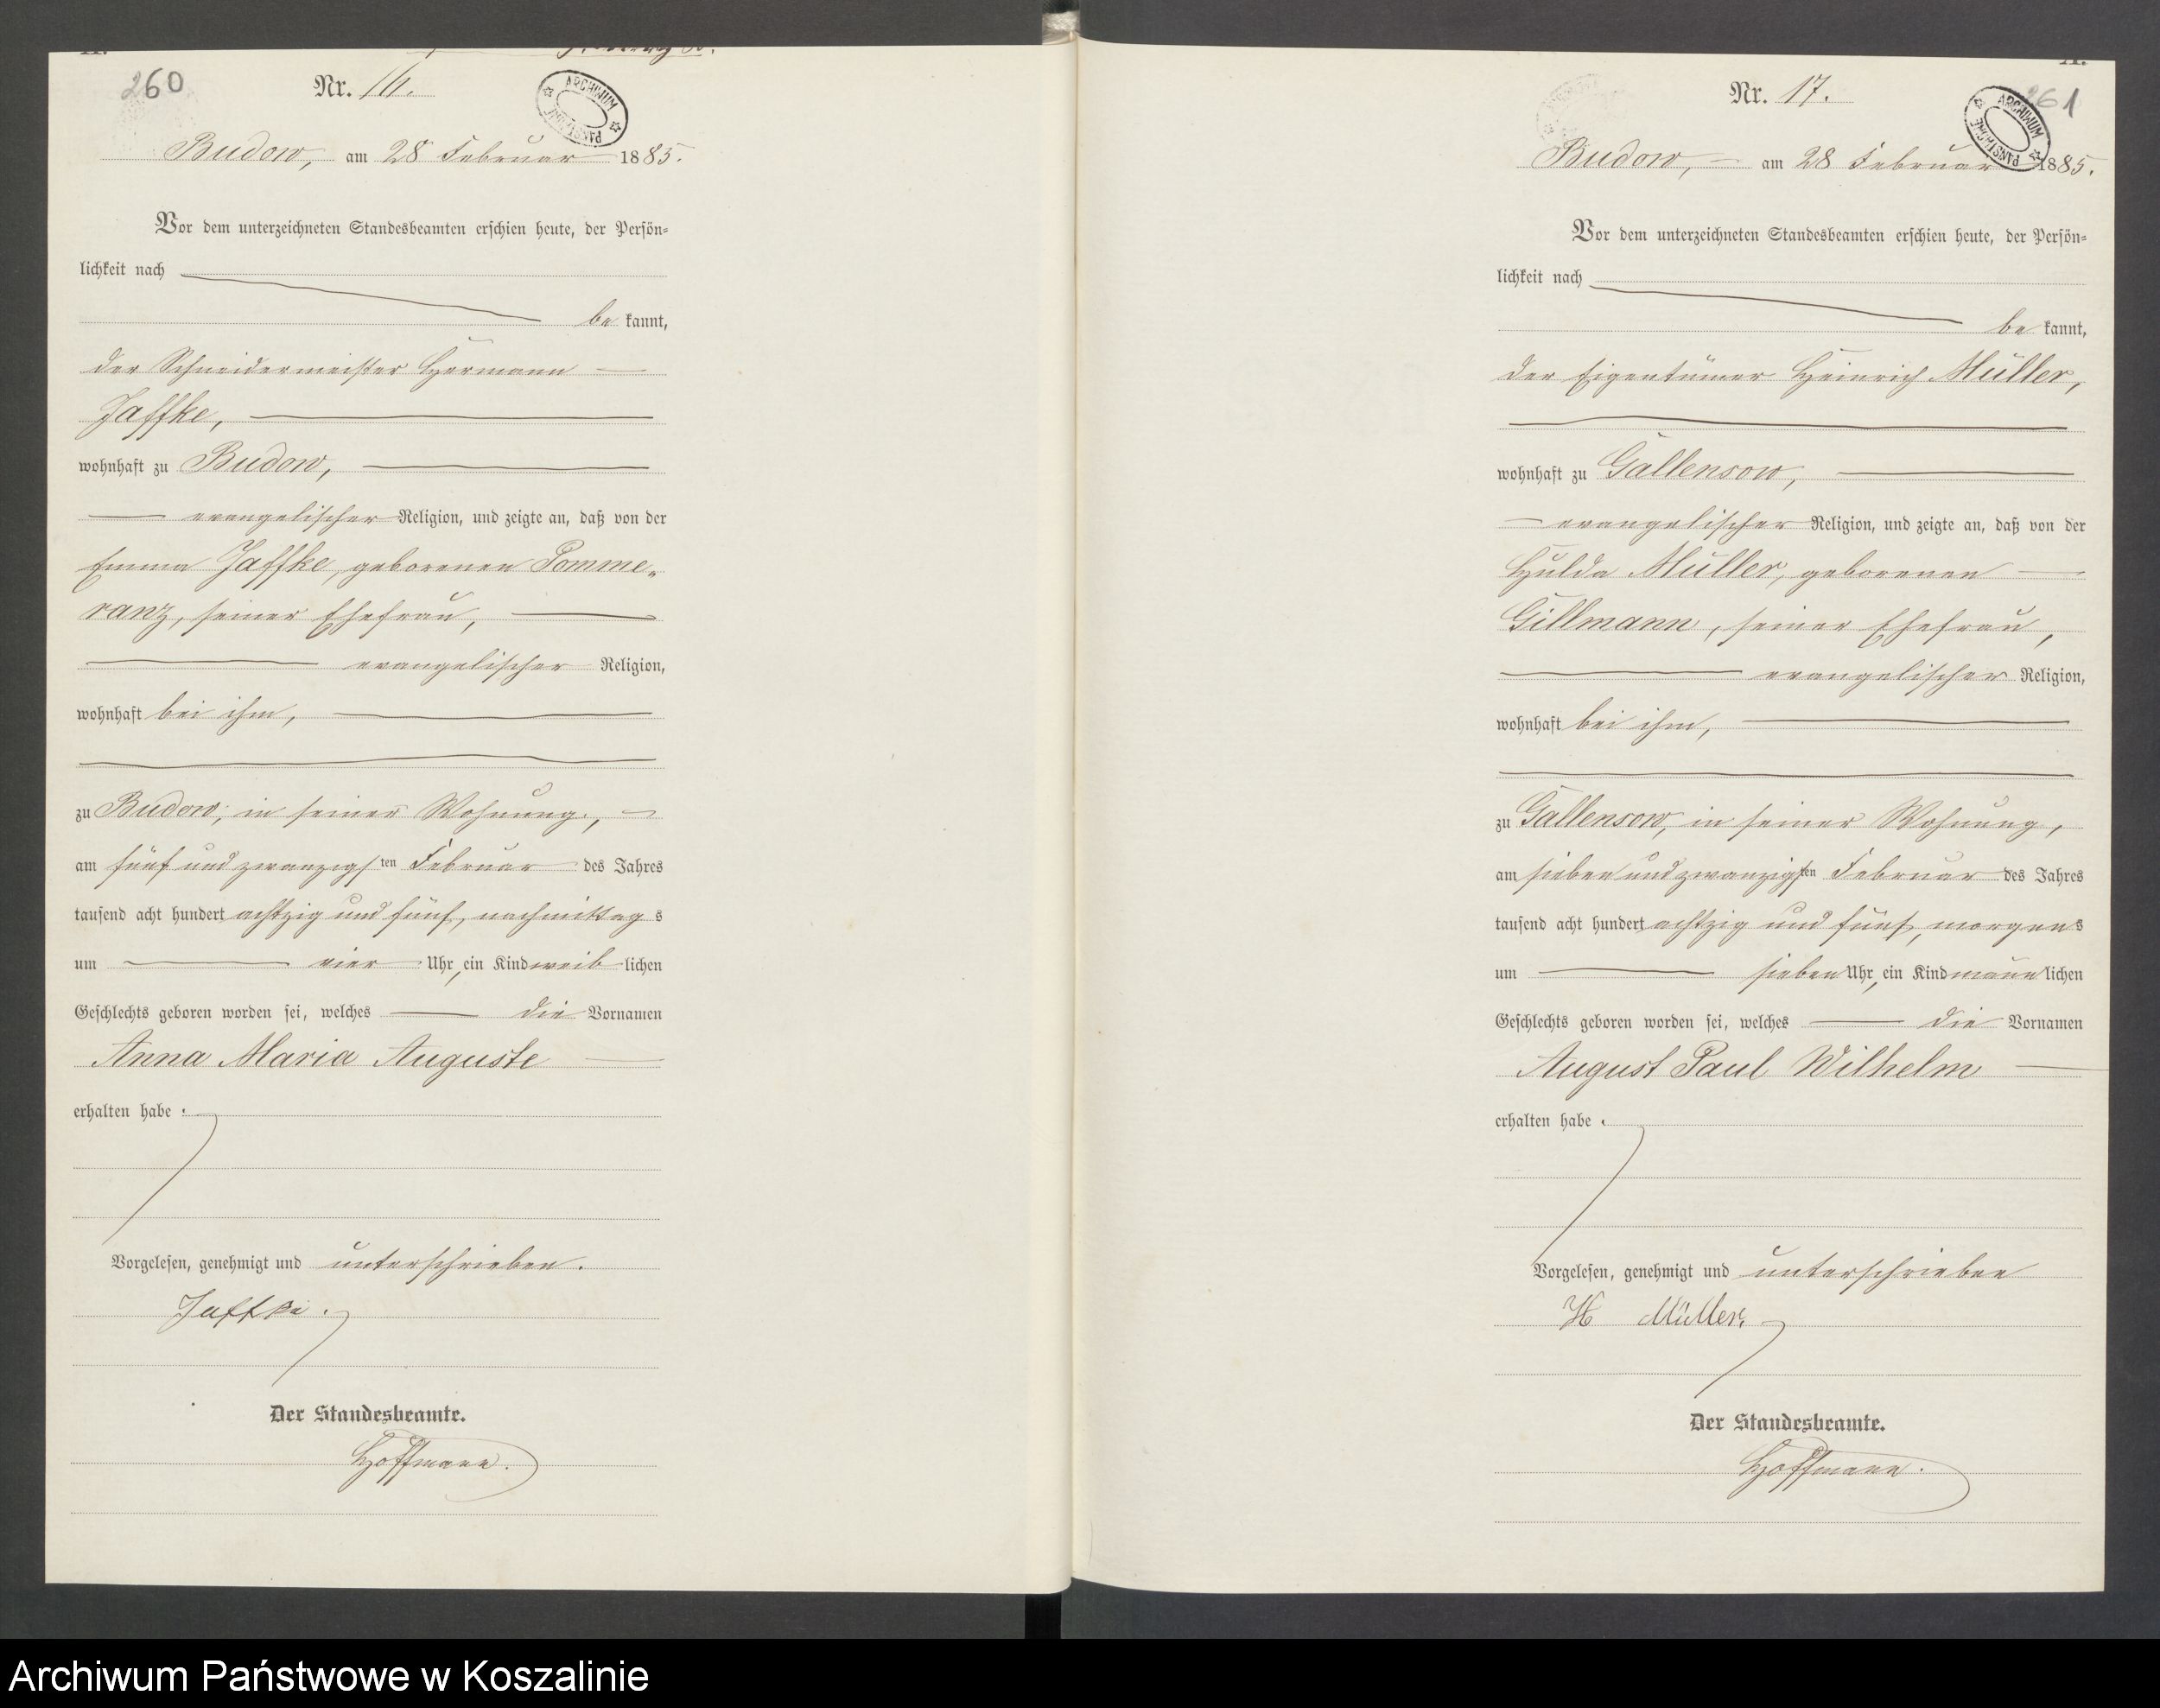 260
Nr. 16.
ARCHIWUM PAŃSTWOWE
Budow, am 28 Februar 1885.
Vor dem unterzeichneten Standesbeamten erschien heute, der Persön=
lichkeit nach
be kannt,
der Schneidermeister Hermann
Jaffke,
wohnhaft zu Budow,
evangelischer Religion, und zeigte an, daß von der
Emma Jaffke, geborenen Pomme-
ranz, seiner Ehefrau,
evangelischer Religion,
wohnhaft bei ihm,
zu Budow, in seiner Wohnung,
am fünf und zwanzigsten Februar des Jahres
tausend acht hundert achtzig und fünf, nachmittag s
um vier Uhr, ein Kind weib lichen
Geschlechts geboren worden sei, welches die Vornamen
Anna Maria Auguste
erhalten habe.
Vorgelesen, genehmigt und unterschrieben.
Jaffke.
Der Standesbeamte.
Hoffmann.
261
Nr. 17.
ARCHIWUM PAŃSTWOWE
Budow, am 28 Februar 1885.
Vor dem unterzeichneten Standesbeamten erschien heute, der Persön=
lichkeit nach
be kannt,
der Eigentümer Heinrich Müller,
wohnhaft zu Gallensow,
evangelischer Religion, und zeigte an, daß von der
Hulda Müller, geborenen
Gillmann, seiner Ehefrau,
evangelischer Religion,
wohnhaft bei ihm,
zu Gallensow, in seiner Wohnung,
am sieben und zwanzigsten Februar des Jahres
tausend acht hundert achtzig und fünf, morgens
um sieben Uhr, ein Kind männ lichen
Geschlechts geboren worden sei, welches die Vornamen
August Paul Wilhelm
erhalten habe.
Vorgelesen, genehmigt und unterschrieben
H Müller.
Der Standesbeamte.
Hoffmann.
Archiwum Państwowe w Koszalinie